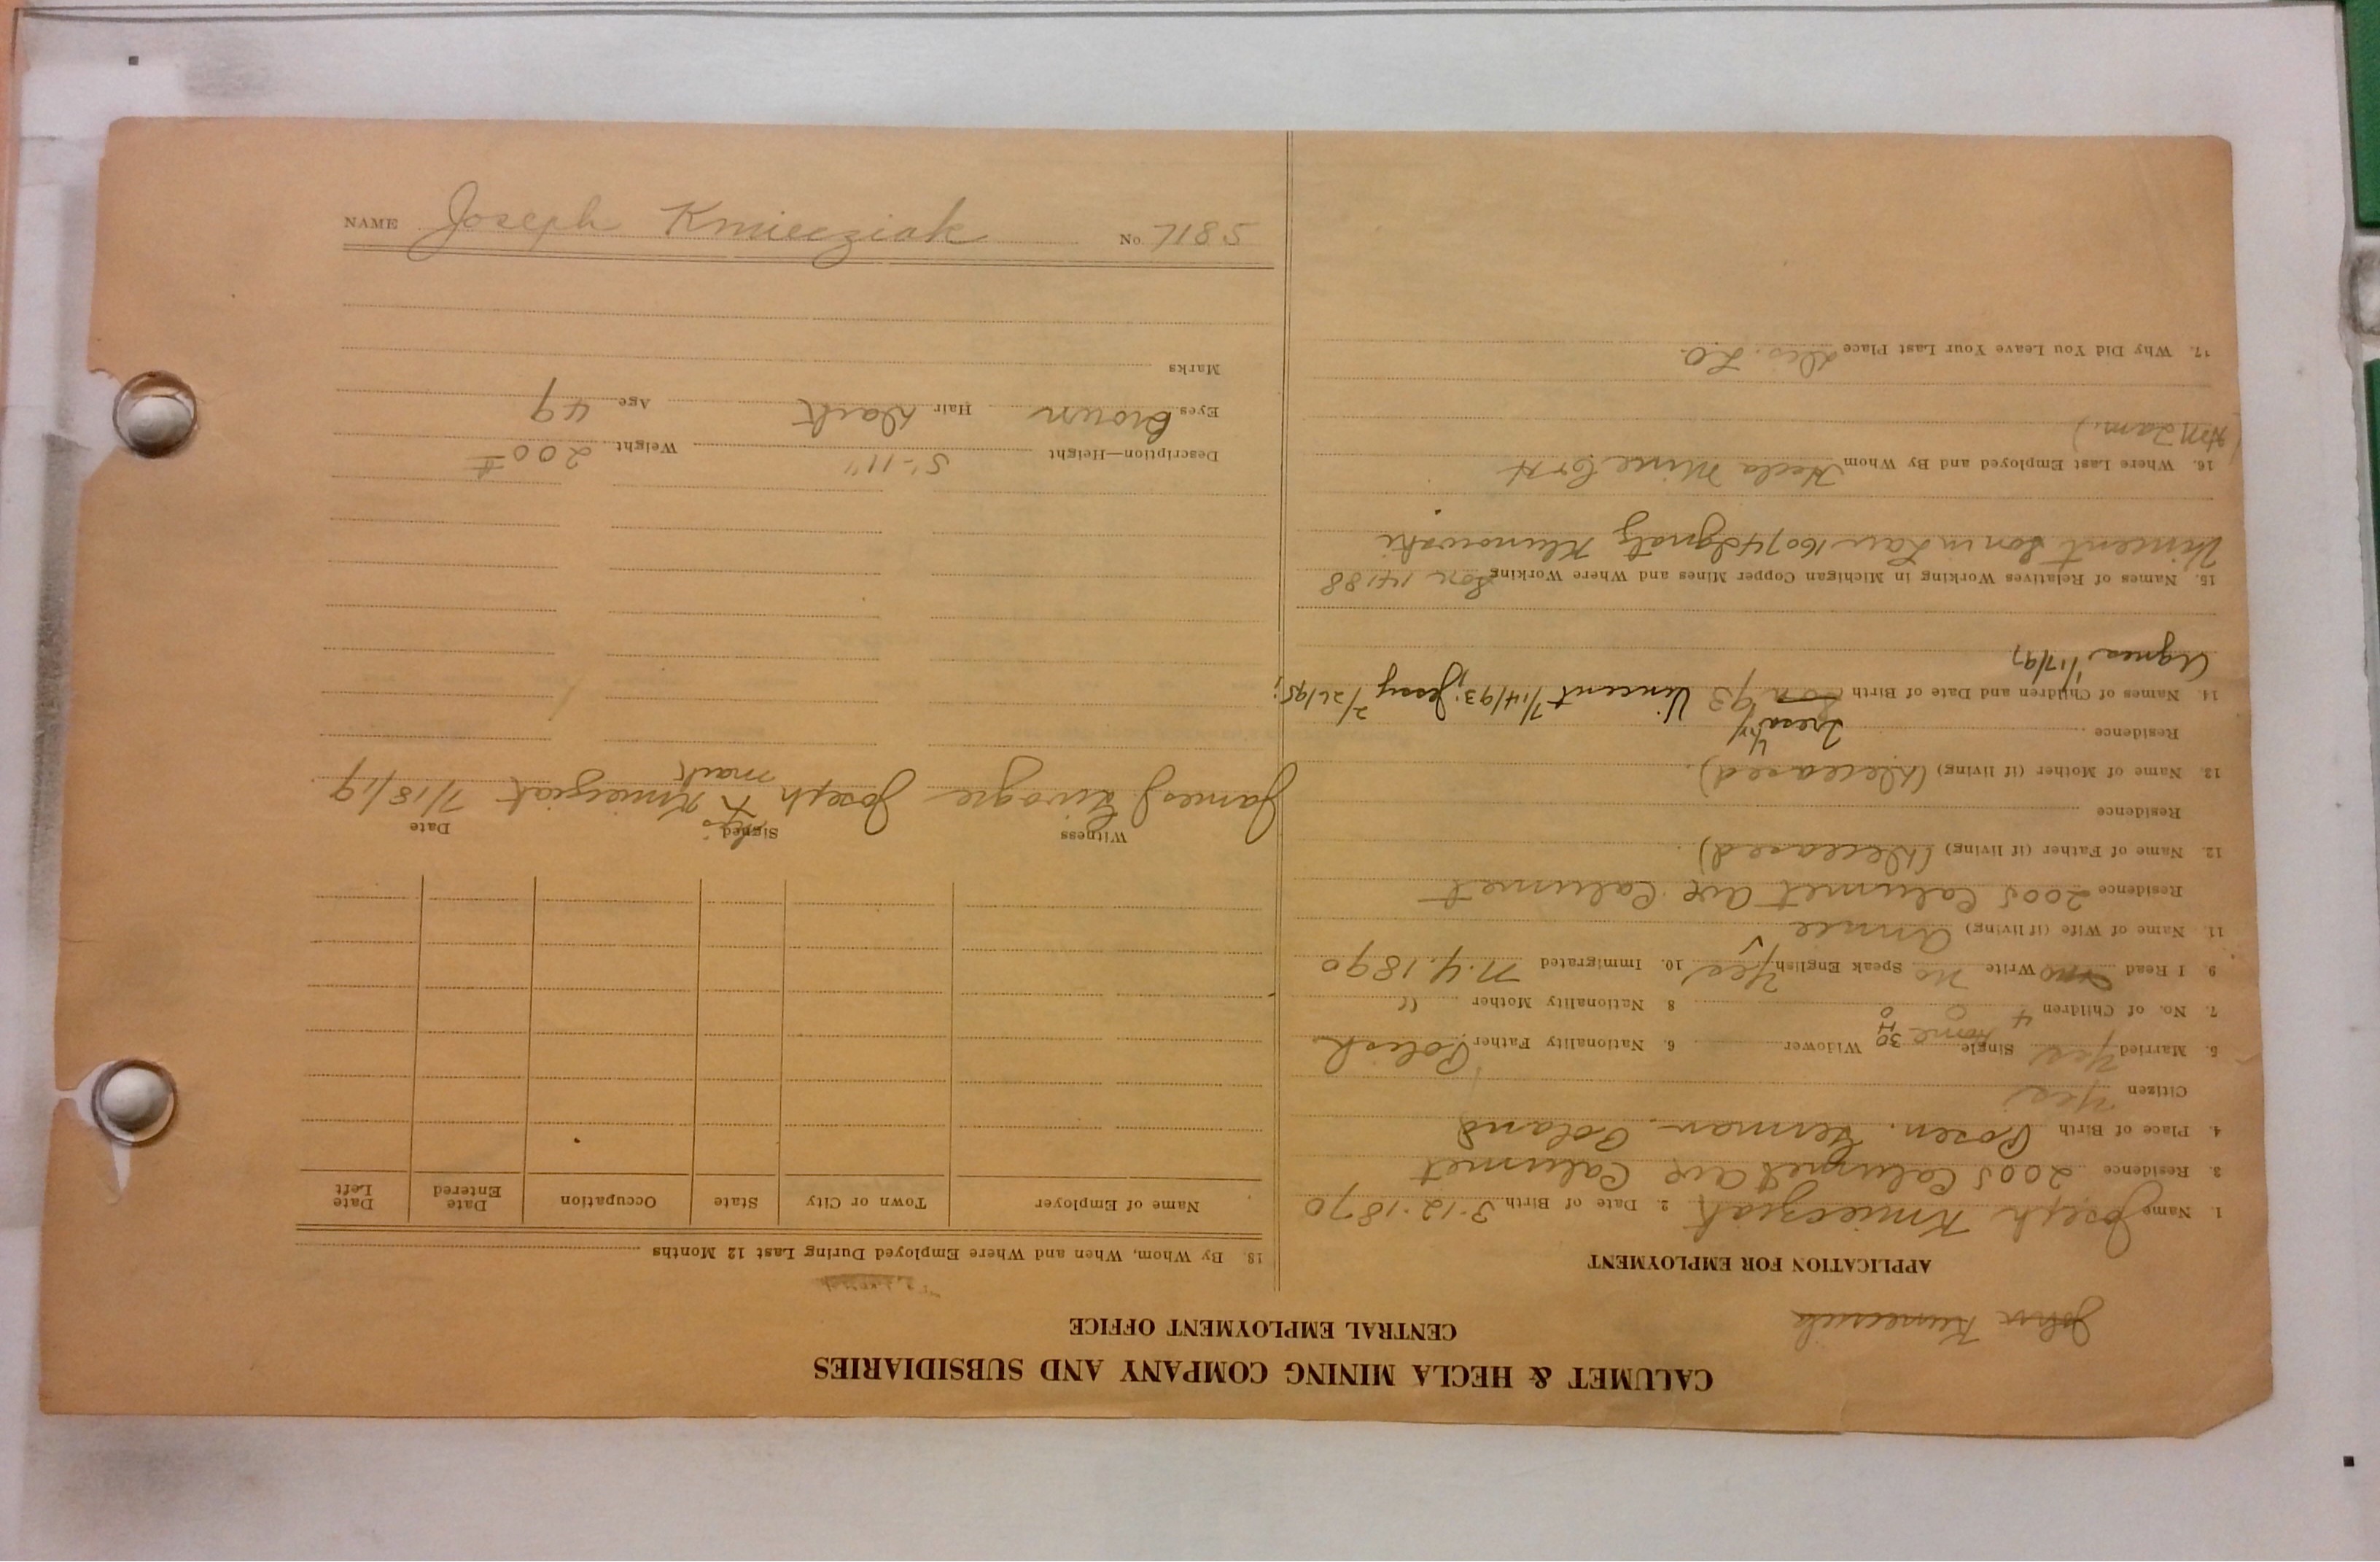 CALUMET & HECLA MINING COMPANY AND SUBSIDIARIES
CENTRAL EMPLOYMENT OFFICE
John
APPLICATION FOR EMPLOYMENT
1. Name Joseph Kmiecziak 2. Date of Birth 3.12.1870
3. Residence 2005 Calumet Ave Calumet
4. Place of Birth Posen. German-Poland
Citizen Yes
5. Married Yes Single Home 30 H Widower 6. Nationality Father Polish
7. No. of Children 4 0 8 Nationality Mother "
9. I Read no Write no Speak English Yes 10. Immigrated N.Y. 1890
11. Name of Wife (if living) Annie
Residence 2005 Calumet Ave Calumet
12. Name of Father (if living) (Deceased).
Residence
13. Name of Mother (if living) (Deceased).
Residence
14. Names of Children and Date of Birth Vincent 7/14/93; Jessy 2/26/95;
Agnes 1/17/97
15. Names of Relatives Working in Michigan Copper Mines and Where Working Son 14188
Vincent Son in Law 16074 Ignatz Klimowski
16. Where Last Employed and By Whom Hecla Mine C&H
17. Why Did You Leave Your Last Place Dis. L.O.
18. By Whom, When and Where Employed During Last 12 Months
Name of Employer Town or City State Occupation Date Entered Date Left
Witness Signed Date
James J Livogre Joseph his X mark Kmiecziak 7/18/19
Description—Height 5'-11" Weight 200#
Eyes Brown Hair Dark Age 49
Marks
NAME Joseph Kmiecziak No. 7185